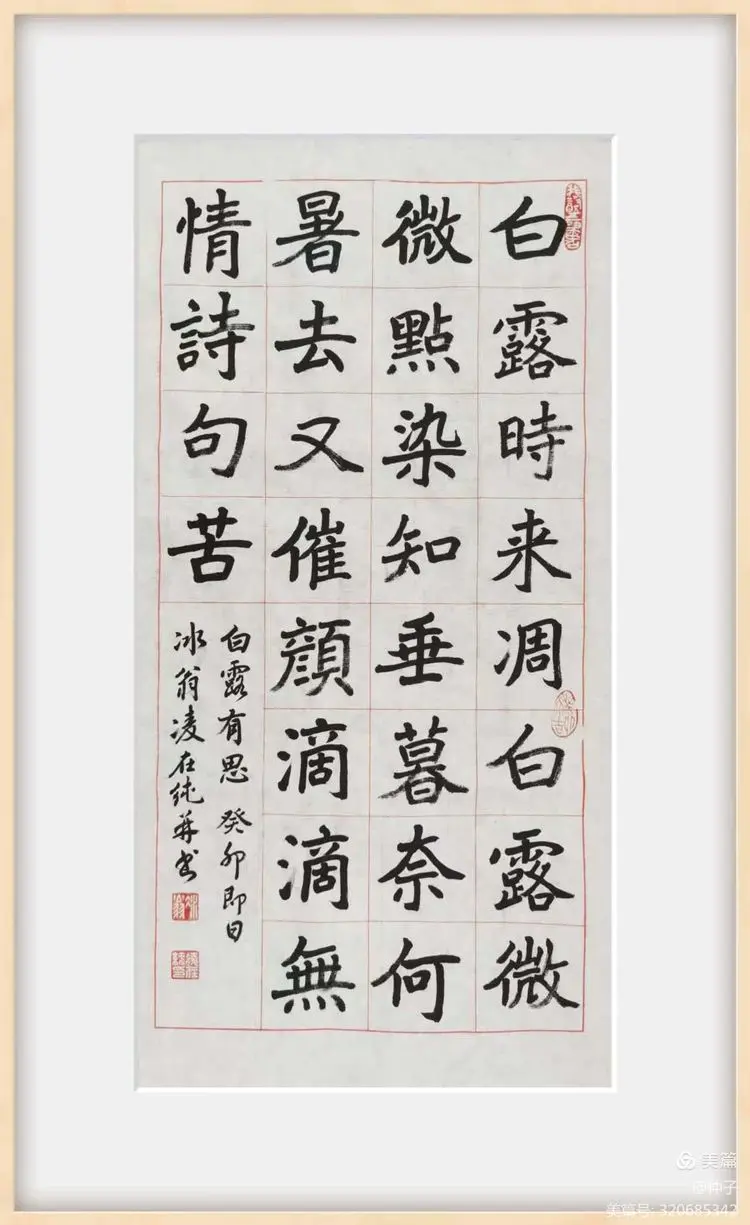 白露時来凋白露微
微點染知垂暮奈何
暑去又催顔滴滴無
情詩句苦
白露有思 癸卯即日
冰翁凌在纯并书
美篇
@仲子
美篇号: 320685342